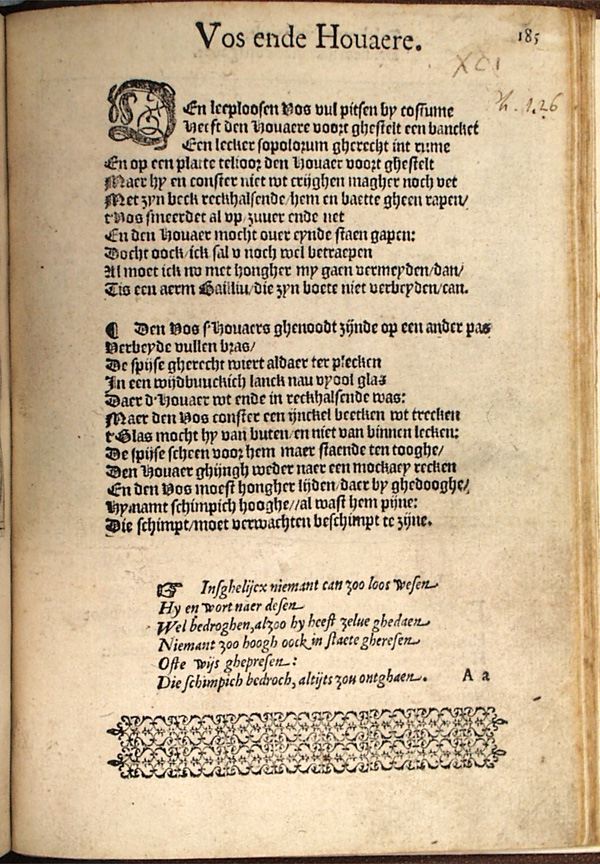 Vos ende Houaere.
185
XCI
Th. 1.26
En leeploosen Vos vul pitsen by costume
Heeft den Houaere voort ghestelt een bancket
Een lecker sopolorum gherecht int rume
En op een platte telioor den Houaer voort ghestelt
Maer hy en conster niet wt crijghen magher noch vet
Met zyn beck reckhalsende/hem en baette gheen rapen/
t'Vos smeerdet al op/zuuer ende net
En den Houaer mocht ouer eynde staen gapen:
Docht oock/ick sal v noch wel betraepen
Al moet ick nv met hongher my gaen vermeyden/dan/
Tis een aerm Bailliu/die zyn boete niet verbeyden/can.
¶ Den Vos s'Houaers ghenoodt zijnde op een ander pas
Verbeyde vullen bras/
De spijse gherecht wiert aldaer ter plecken
In een wijdbuuckich lanck nau vyool glas
Daer d'Houaer wt ende in reckhalsende was:
Maer den Vos conster een ijnckel beetken wt trecken
t'Glas mocht hy van buten/en niet van binnen lecken:
De spijse scheen voor hem maer staende ten tooghe/
Den Houaer ghijngh weder naer een mockaey recken
En den Vos moest hongher lijden/daer by ghedooghe/
Hy namt schimpich hooghe//al wast hem pijne:
Die schimpt/moet verwachten beschimpt te zijne.
☞ Insghelijcx niemant can zoo loos wesen
Hy en wort naer desen
Wel bedroghen, alzoo hy heeft zelue ghedaen
Niemant zoo hoogh oock in staete gheresen
Ofte wijs ghepresen:
Die schimpich bedroch, altijts zou ontghaen. A a